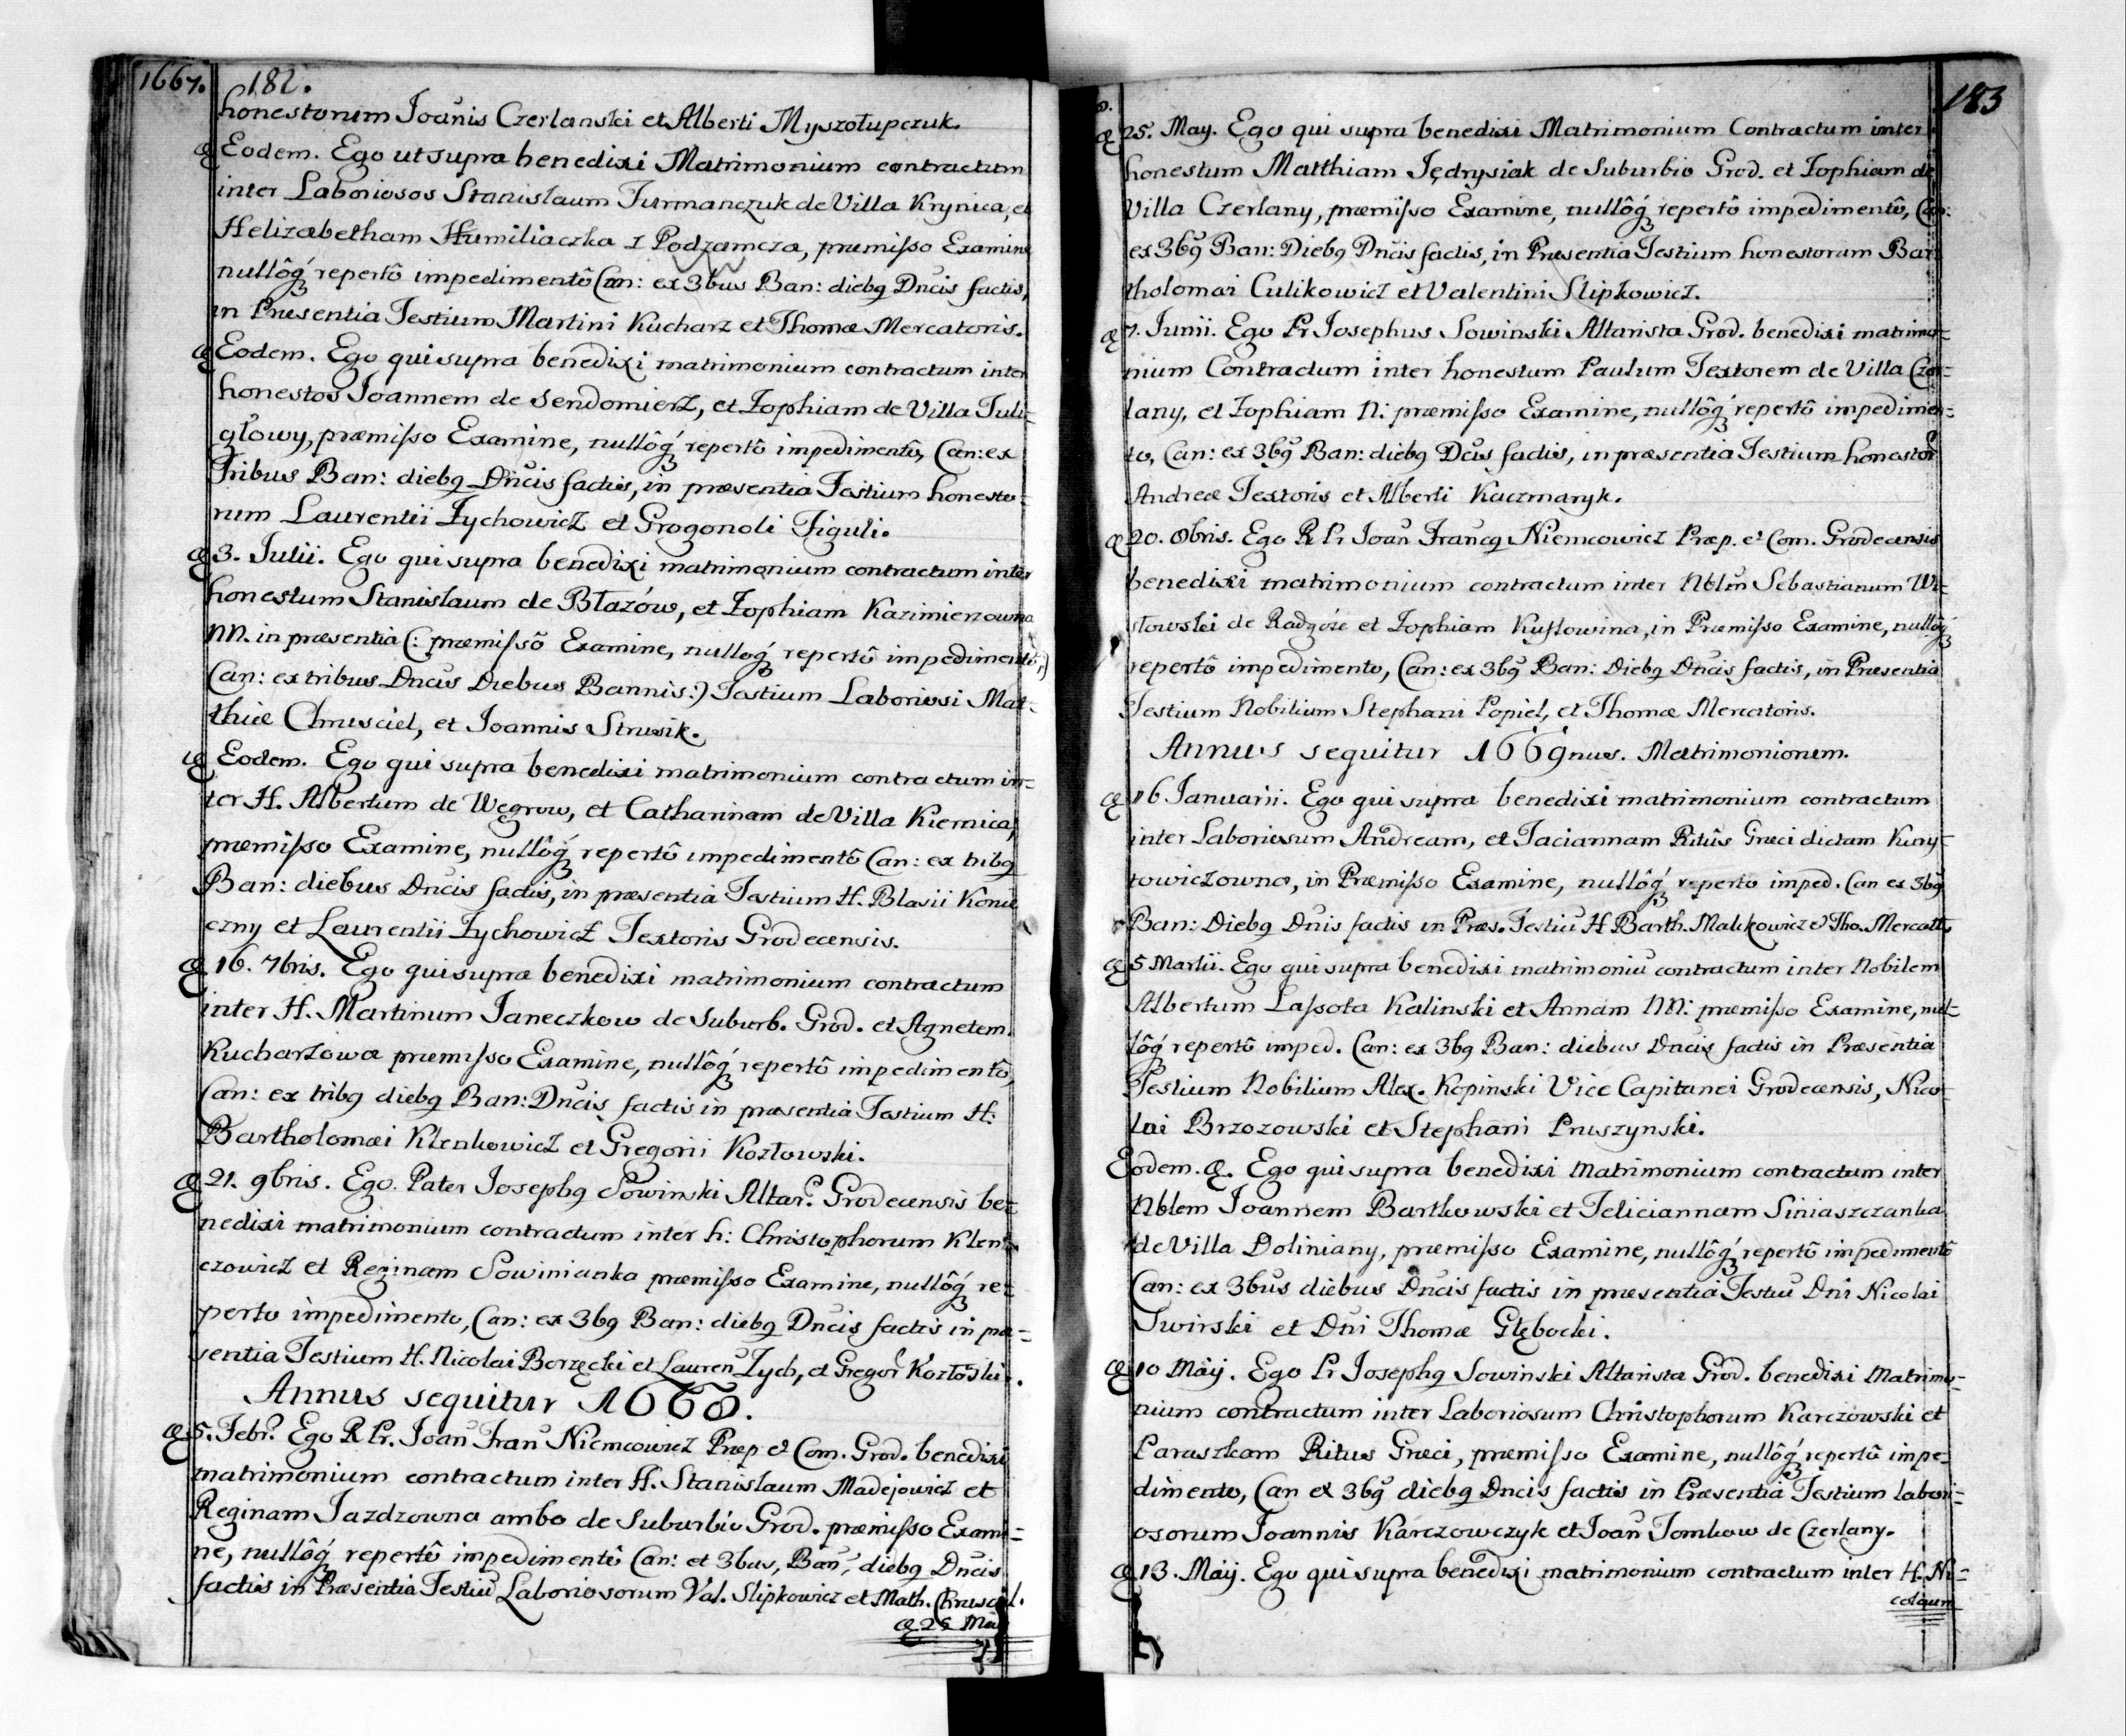 1667. 182.
honestorum Joãnis Czerlanski et Alberti Myszołupczuk.
Eodem. Ego ut supra benedixi Matrimonium contractum
inter Laboriosos Stanislaum Furmanczuk de Villa Krynica, et
Helizabetham Humiliaczka z Podzamcza, præmisso Examine
nullôq́ repertô impedimentô Can: ex 3bus Ban: diebq Dn̄cis factis,
in Præsentia Testium Martini Kucharz et Thomæ Mercatoris.
Eodem. Ego qui supra benedixi matrimonium contractum inter
honestos Joannem de Sendomierz, et Zophiam de Villa Tuli-
głowy, præmisso Examine, nullôq́ repertô impedimentô, Can: ex
Tribus Ban: diebq Dn̄cis factis, in præsentia Testium honesto-
rum Laurentii Zychowicz et Grogonoli Figuli.
3. Julii. Ego qui supra benedixi matrimonium contractum inter
honestum Stanislaum de Błazów, et Zophiam Kazimierzowna
NN. in præsentia (: præmissô Examine, nulloq́ repertô impedimentô,
Can: ex tribus Dn̄cis Diebus Bannis:) Testium Laboriosi Mat-
thiæ Chrusciel, et Joannis Strusik.
Eodem. Ego qui supra benedixi matrimonium contractum in-
ter H. Albertum de Węgrow, et Catharinam de Villa Kiernica,
præmisso Examine, nullôq́ repertô impedimentô Can: ex tribq
Ban: diebus Dn̄cis factis, in præsentia Testium H. Blasii Konie
czny et Laurentii Zychowicz Textoris Grodecensis.
16. 7bris. Ego qui supra benedixi matrimonium contractum
inter H. Martinum Janeczkow de Suburb. Grod. et Agnetem
Kucharzowa præmisso Examine, nullôq́ repertô impedimentô,
Can: ex tribq diebq Ban: Dn̄cis factis in præsentia Testium H.
Bartholomæi Klenkowicz et Gregorii Kozłowski.
21. 9bris. Ego Pater Josephq Sowinski Altar. Grodecensis be-
nedixi matrimonium contractum inter h: Christophorum Klen-
czowicz et Reginam Sowinianka præmisso Examine, nullôq́ re-
perto impedimento, Can: ex 3bq Ban: diebq Dn̄cis factis in præ-
sentia Testium H. Nicolai Borzęcki et Lauren Zych, et Gregor Kozłoski.
Annus sequitur 1668.
5. Febr. Ego R Pr. Joan Fran Niemcowicz Præp et Com. Grod. benedixi
matrimonium contractum inter H. Stanislaum Madejowicz et
Reginam Jazdzowna ambo de Suburbio Grod. præmisso Exami-
ne, nullôq́ repertô impedimentô Can: et 3bus, Ban, diebq Dn̄cis
factis in Præsentia Testiū Laboriosorum Val. Slipkowicz et Math. Chrusciel.
25 Maÿ
183
25. May. Ego qui supra benedixi Matrimonium Contractum inter
honestum Matthiam Jędrysiak de Suburbio Grod. et Zophiam de
Villa Czerlany, præmisso Examine, nullôq́ repertô impedimentô, Can:
ex 3bq Ban: Diebq Dn̄cis factis, in Præsentia Testium honestorum Bar
tholomæi Culikowicz et Valentini Slipkowicz.
7. Junii. Ego Pr Josephus Sowinski Altarista Grod. benedixi matrimo-
nium Contractum inter honestum Paulum Textorem de Villa Czer-
lany, et Zophiam N: præmisso Examine, nullôq́ repertô impedimen-
to, Can: ex 3bq Ban: diebq Dcis factis, in præsentia Testium honestor
Andreæ Textoris et Alberti Kaczmaryk.
20. 8bris. Ego R Pr Joan Francq Niemcowicz Præp. et Com. Grodecensis
benedixi matrimonium contractum inter Nblm Sebastianum Wi-
słowski de Radgoie et Zophiam Kustowina, in Præmisso Examine, nullôq́
repertô impedimento, Can: ex 3bq Ban: Diebq Dn̄cis factis, in Præsentia
Testium Nobilium Stephani Popiel, et Thomæ Mercatoris.
Annus sequitur 1669nus. Matrimonionem.
16 Januarii. Ego qui supra benedixi matrimonium contractum
inter Laboriosum Andream, et Taciannam Ritûs Græci dictam Kuny-
towiczowna, in Præmisso Examine, nullôq́ reperto imped. Can ex 3bq
Ban: Diebq Dnis factis in Præs. Testiū H Barth. Malikowicz et Tho. Mercatt.
5 Martii. Ego qui supra benedixi matrimoniū contractum inter Nobilem
Albertum Lassota Kalinski et Annam NN: præmisso Examine, nul-
lôq́ repertô imped. Can: ex 3bq Ban: diebus Dn̄cis factis in Præsentia
Testium Nobilium Alex. Kopinski Vice Capitanei Grodecensis, Nico-
lai Brzozowski et Stephani Pruszynski.
Eodem. Ego qui supra benedixi Matrimonium contractum inter
Nblem Joannem Bartkowski et Feliciannam Siniaszczanka
de Villa Doliniany, præmisso Examine, nullôq́ repertô impedimentô
Can: ex 3bus diebus Dn̄cis factis in præsentia Testiū Dnī Nicolai
Swirski et Dnī Thomæ Głębocki.
10 Maÿ. Ego Pr Josephq Sowinski Altarista Grod. benedixi Matrimo-
nium contractum inter Laboriosum Christophorum Karczowski et
Paraszkam Ritus Græci, præmisso Examine, nullôq́ repertô impe-
dimento, Can ex 3bq diebq Dncis factis in Præsentia Testium labori-
osorum Joannis Karczowczyk et Joan Tomkow de Czerlany.
13. Maÿ. Ego qui supra benedixi matrimonium contractum inter H. Ni-
colaum